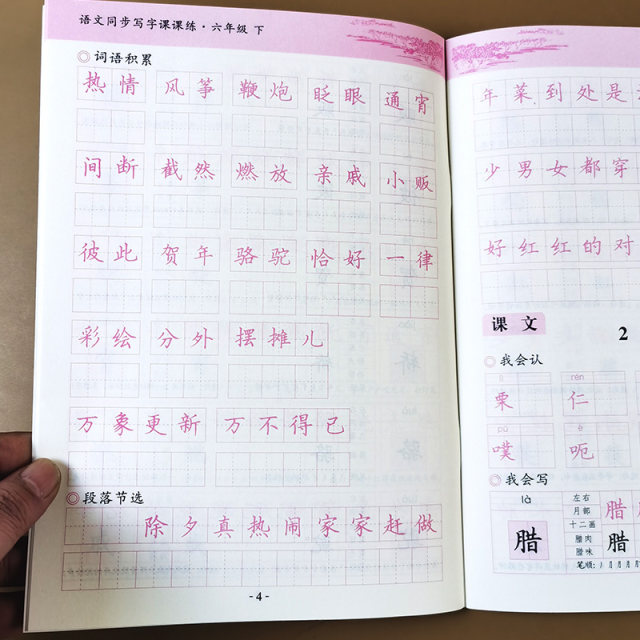 语文同步写字课课练·六年级 下
◎词语积累
热情 风筝 鞭炮 眨眼 通宵
间断 截然 燃放 亲戚 小贩
彼此 贺年 骆驼 恰好 一律
彩绘 分外 摆摊儿
万象更新 万不得已
◎段落节选
除夕真热闹家家赶做
- 4 -
年菜到处是
少男女都穿
好红红的对
课文
2
◎我会认
lì rén
栗 仁
pū è
噗 呃
◎我会写
là
腊
左右
月部
十二画
腊肉
腊味
笔顺:
腊
腊 腊